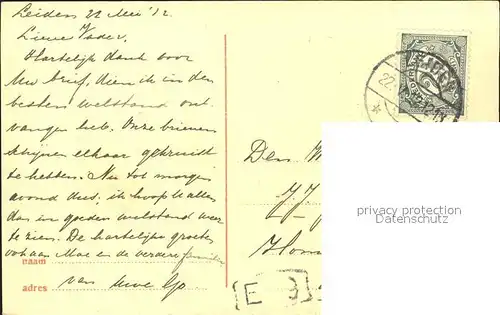 Leiden 22 Mei '12
Lieve Vader,
Hartelijk dank voor
Uw brief, dien ik in den
besten welstand ont-
vangen heb. Onze brieven
schijnen elkaar gekruist
te hebben. Nu tot morgen
avond dus, ik hoop U allen
dan in goeden welstand weer
te zien. De hartelijke groeten
ook aan Moe en de verdere familie
naam
van Uwe
adres
Den
J.J.
[E 3]
LEIDEN
22.
privacy protection
DELCAMPE.NET